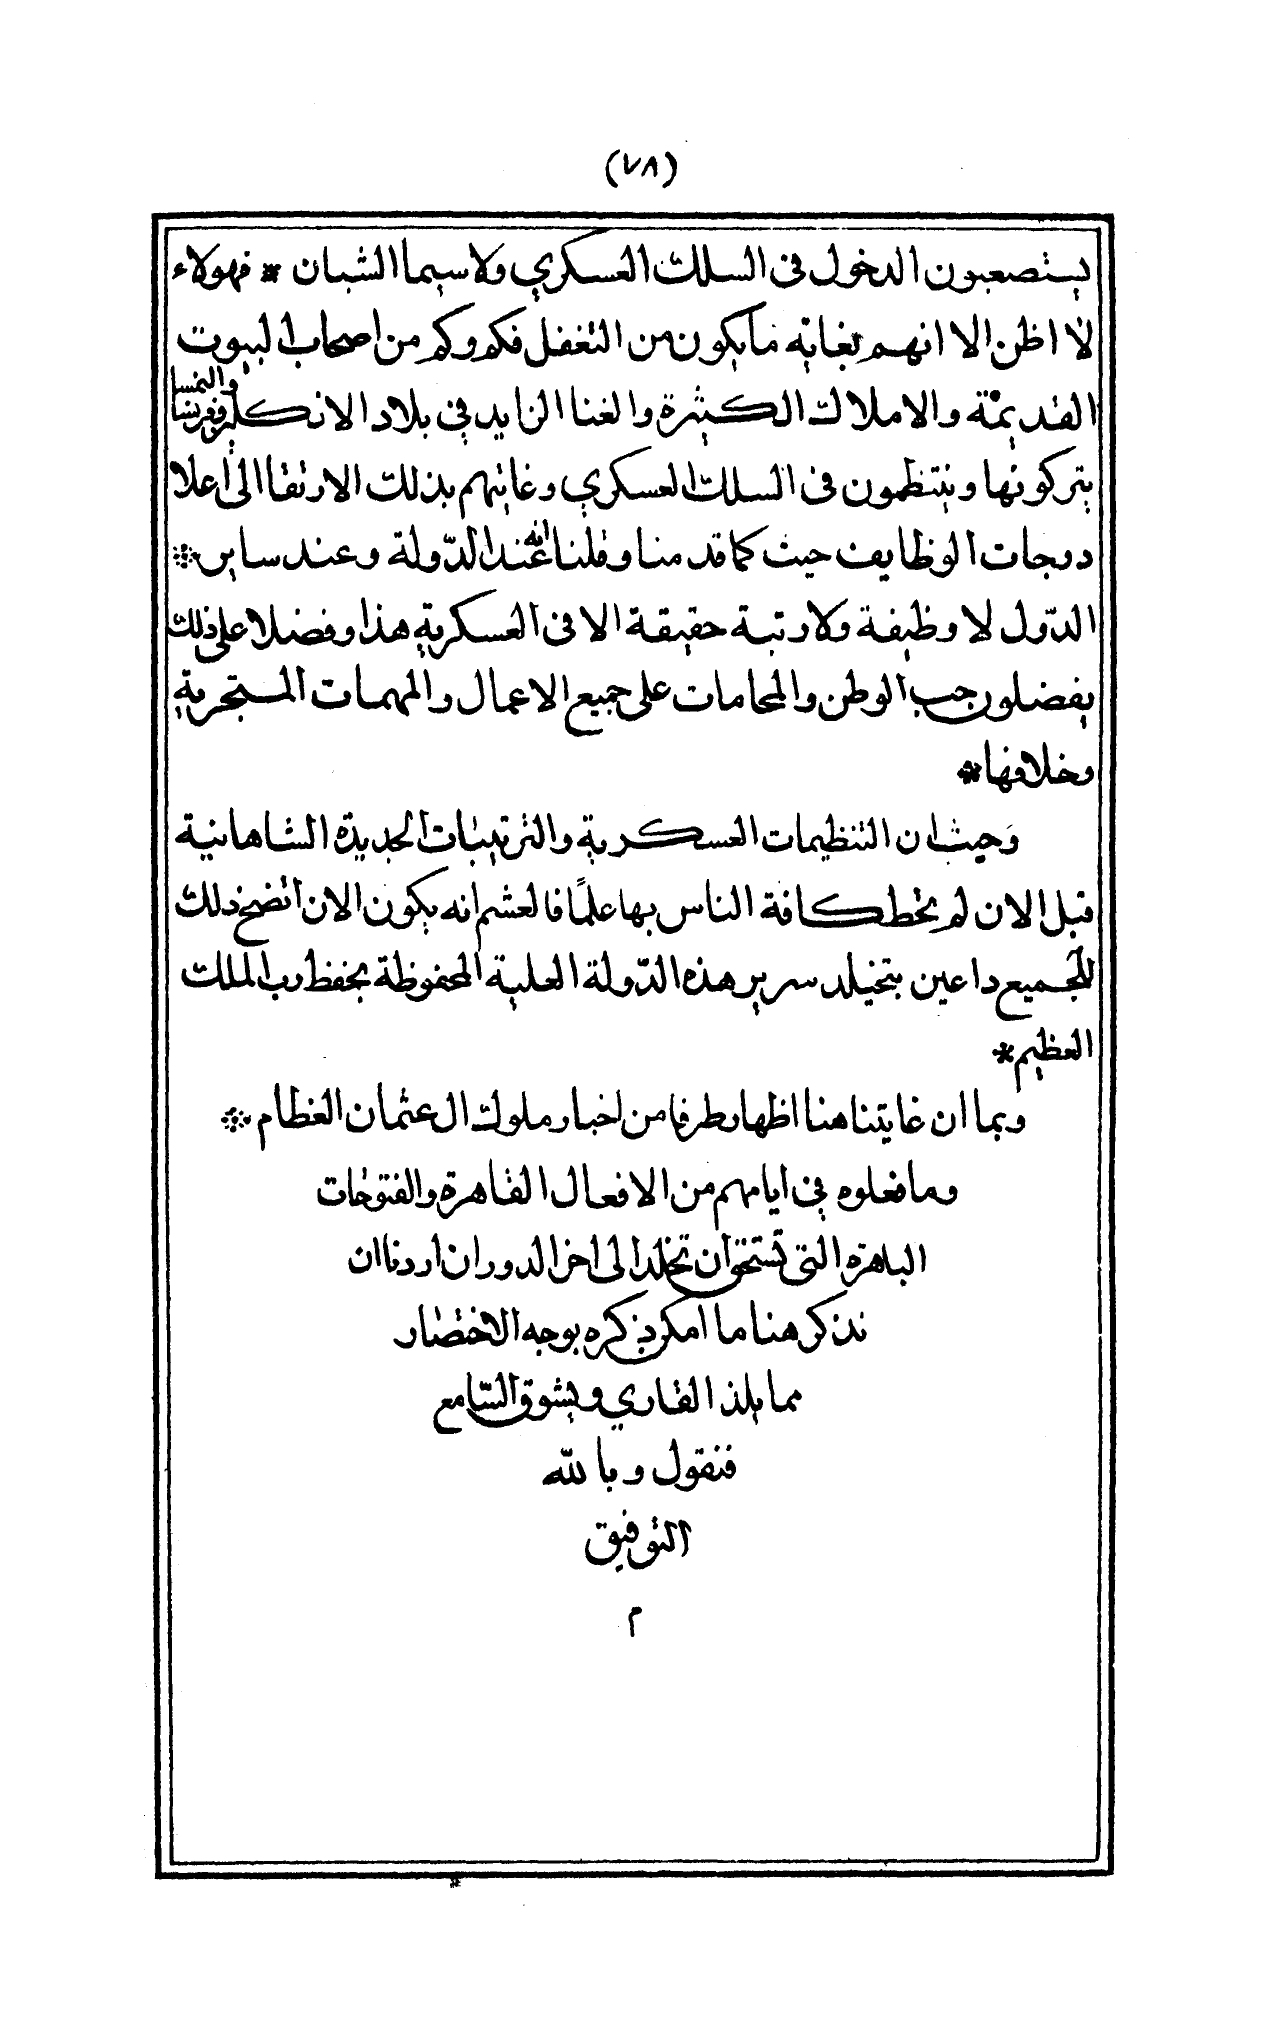 (٧٨)
يستصعبون الدخول في السلك العسكري ولا سيما الشبان * فهولاء
لا اظن الا انهم بغاية ما يكون من التغفل فكم وكم من اصحاب البيوت
القديمة والاملاك الكثيرة والغنا الزايد في بلاد الانكليز وفرنسا والنمسا
يتركونها وينتظمون في السلك العسكري وغايتهم بذلك الارتقا الى اعلا
درجات الوظايف حيث كما قدمنا وقلنا انه عند الدّولة وعند ساير *
الدّول لا وظيفة ولا رتبة حقيقة الا في العسكرية هذا وفضلا على ذلك
يفضلون حب الوطن والمحامات على جميع الاعمال والمهمات المستجرية
وخلافها *
وحيث ان التنظيمات العسكرية والترتيبات الجديدة الشاهانية
قبل الان لم يخط كافة الناس بها علمًا فالعشم انه يكون الان اتضح ذلك
للجميع داعين بتخيلد سرير هذه الدّولة العلية المحفوظة بحفظ رب الملك
العظيم *
وبما ان غايتنا هنا اظهار طرفا من اخبار ملوك ال عثمان العظام *
وما فعلوه في ايامهم من الافعال القاهرة والفتوحات
الباهرة التي تستحق ان تخلد الى اخر الدوران اردنا ان
نذكر هنا ما امكن ذكره بوجه الاختصار
مما يلذ القاري ويشوق السّامع
فنقول وبالله
التوفيق
م